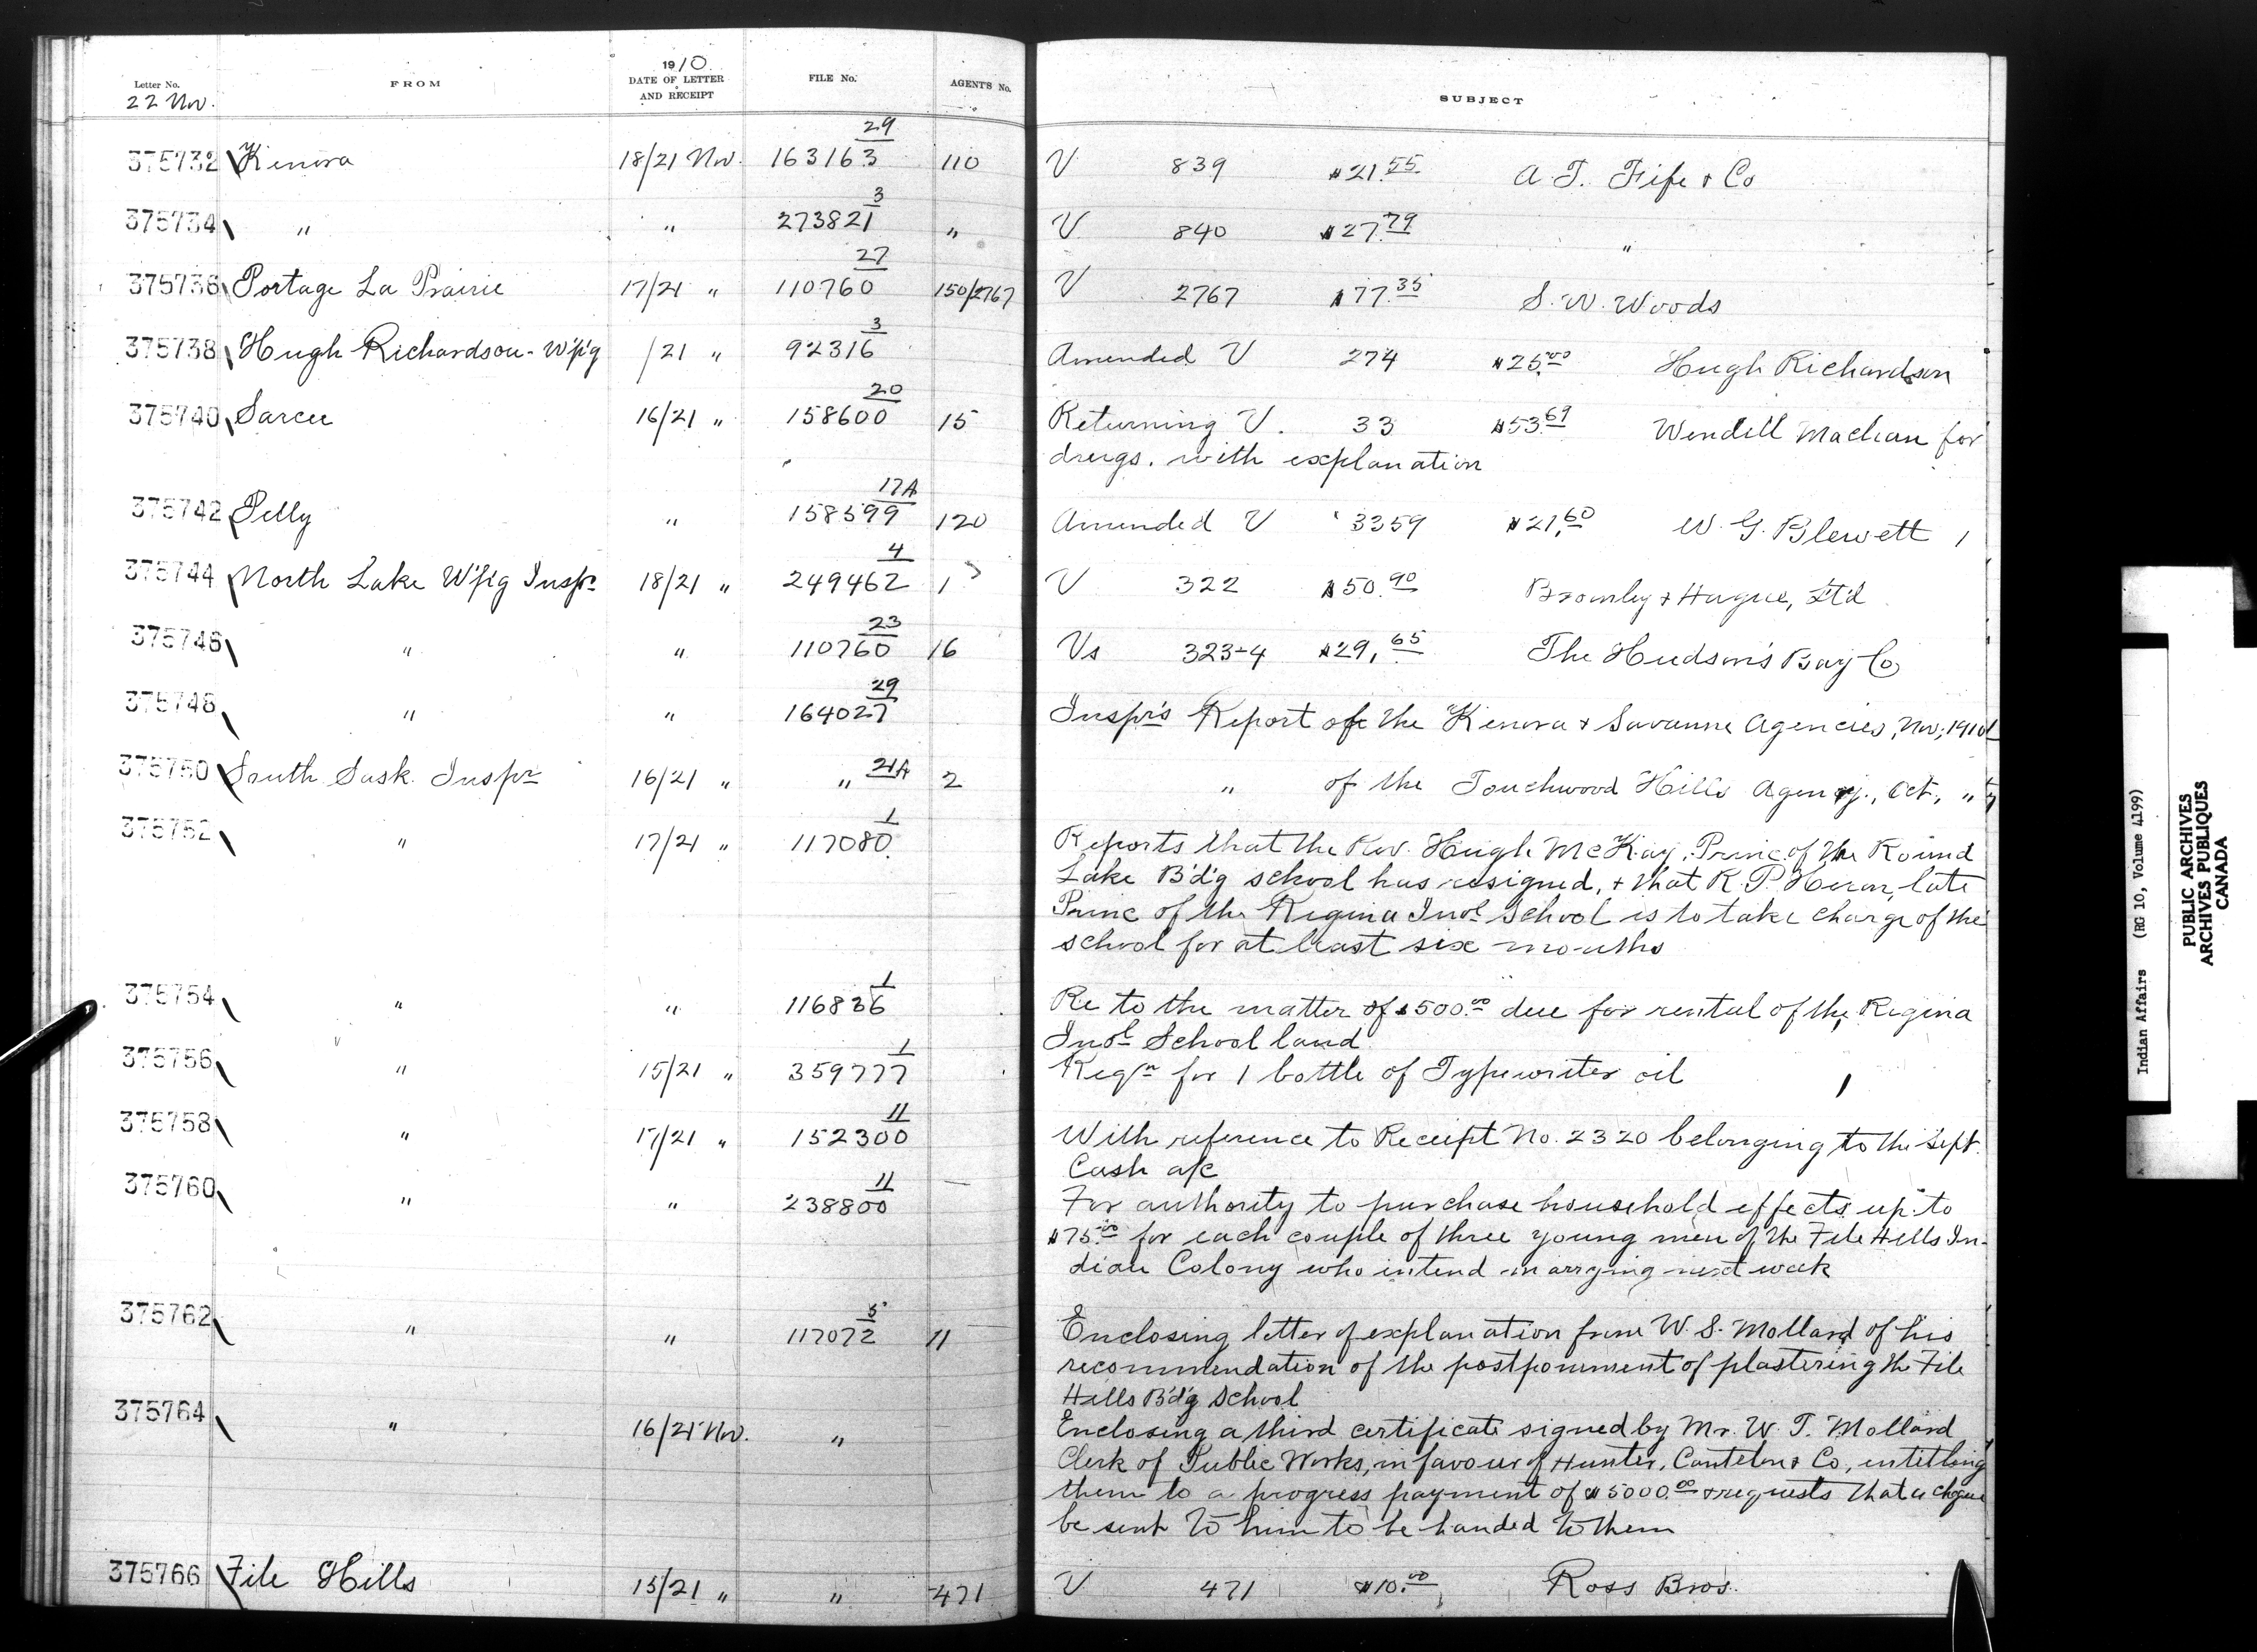 1910
Letter No. FROM DATE OF LETTER AND RECEIPT FILE No. AGENT'S No. SUBJECT
22 Nov.
375732 Kenora 18/21 Nov. 163163 29 110 V 839 $21.55 A. T. Fife & Co
375734 " " 273821 3 " V 840 $27.79 "
375736 Portage La Prairie 17/21 " 110760 27 150/2767 V 2767 $77.35 S. W. Woods
375738 Hugh Richardson - W'p'g /21 " 92316 3 Amended V 274 $25.00 Hugh Richardson
375740 Sarcee 16/21 " 158600 20 15 Returning V. 33 $53.69 Wendell Maclean for
drugs. with explanation
375742 Pelly " 158599 17A 120 Amended V 3359 $21.60 W. G. Blewett
375744 North Lake W'p'g Inspr 18/21 " 249462 4 1 V 322 $50.90 Bromley & Hague, Ltd
375746 " " 110760 23 16 Vs 323-4 $29.65 The Hudson's Bay Co
375748 " " 164027 29 Inspr's Report of the Kenora & Savanne Agencies, Nov, 1910
375750 South Sask. Inspr 16/21 " " 21A 2 " of the Touchwood Hills Agency., Oct, "
375752 " 17/21 " 117080 1 Reports that the Rev. Hugh McKay, Princ of the Round
Lake B'd'g school has resigned, & that R. P. Heron, late
Princ of the Regina Indl School is to take charge of the
school for at least six months
375754 " " 116836 1 Re to the matter of $500.00 due for rental of the Regina
Indl School land
375756 " 15/21 " 359777 1 Reqn for 1 bottle of Typewriter oil
375758 " 17/21 " 152300 11 With reference to Receipt No. 2320 belonging to the Sept.
Cash a/c
375760 " " 238800 11 For authority to purchase household effects up to
$75.00 for each couple of three young men of the File Hills In-
dian Colony who intend marrying next week
375762 " " 117072 5 11 Enclosing letter of explanation from W. S. Mollard of his
recommendation of the postponment of plastering the File
Hills B'd'g School
375764 " 16/21 Nov. " Enclosing a third certificate signed by Mr. W. T. Mollard
Clerk of Public Works, in favour of Hunter, Cantelon & Co, entitling
them to a progress payment of $5000.00 & requests that a cheque
be sent to him to be handed to them
375766 File Hills 15/21 " " 471 V 471 $10.00 Ross Bros.
Indian Affairs (RG 10, Volume 4199)
PUBLIC ARCHIVES
ARCHIVES PUBLIQUES
CANADA